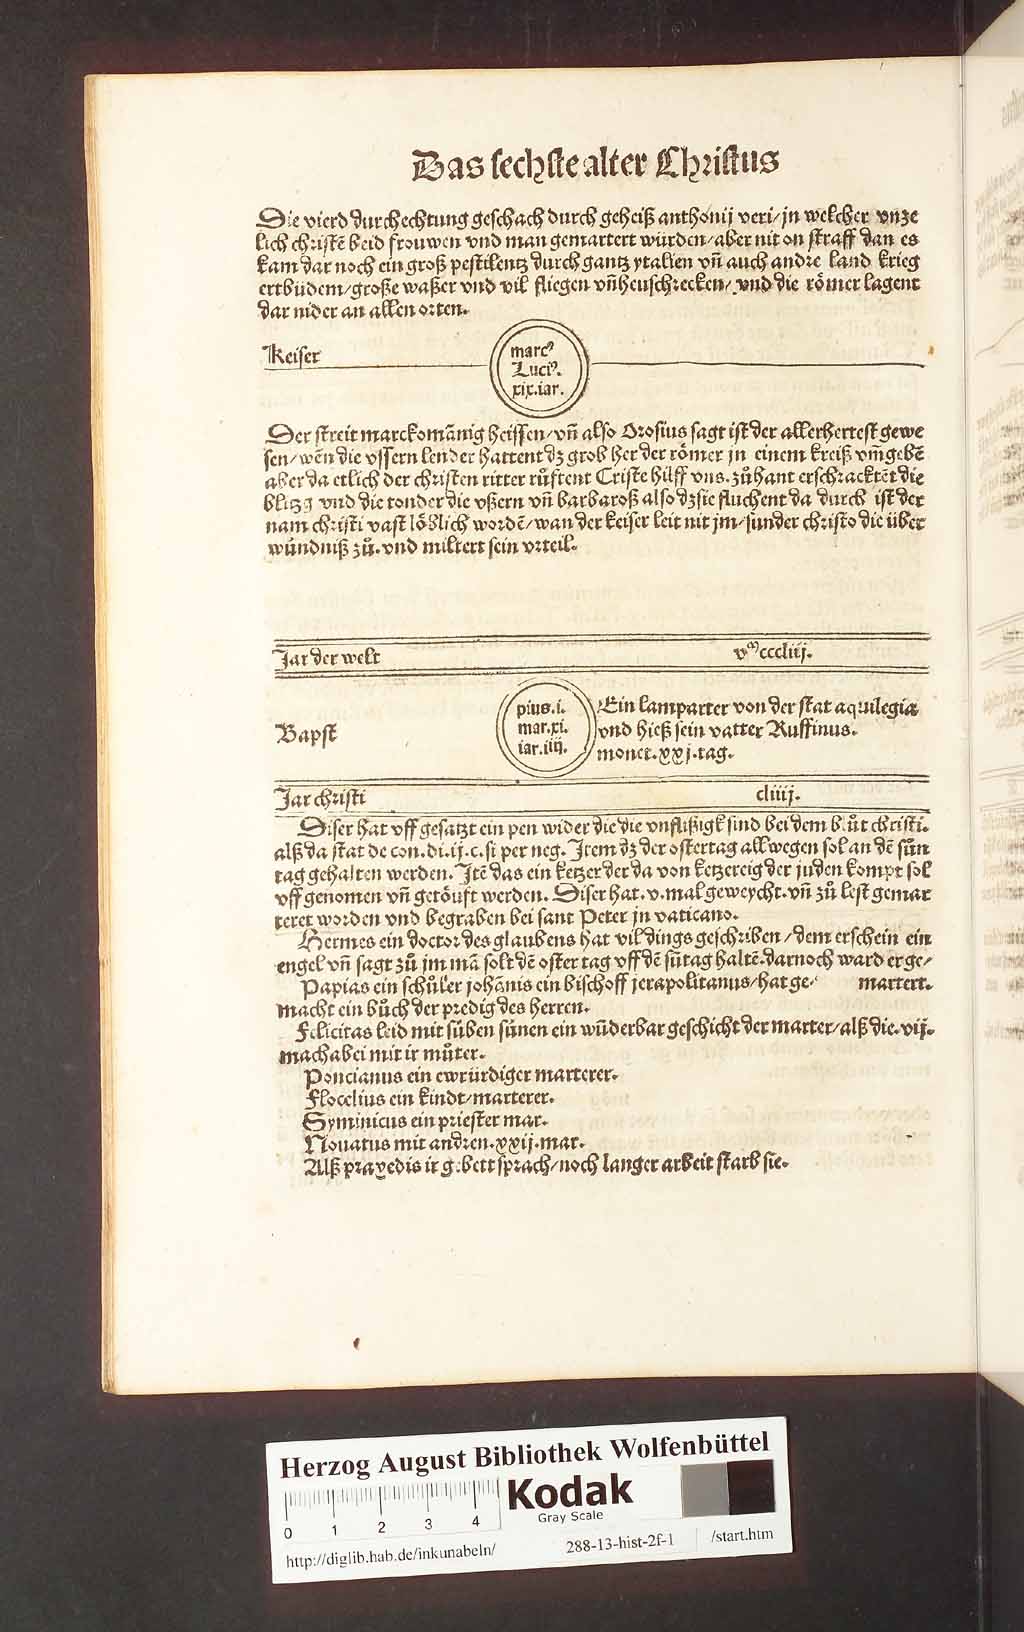 Das sechste alter Christus
Die vierd durchechtung geschach durch geheiß anthonij veri/ jn welcher vnze
lich christē beid frouwen vnd man gemartert würden/ aber nit on straff dan es
kam dar noch ein groß pestilentz durch gantz ytalien vn̄ auch andre land krieg
ertbüdem/ große waßer vnd vil fliegen vn̄ heuschrecken/ vnd die rőmer lagent
dar nider an allen orten.
Keiser
marcꝰ
Luciꝰ.
xix.iar.
Der streit marckomānig heissen/ vn̄ also Orosius sagt ist der allerhertest gewe
sen/ wēn die vssern lender hattent dz grob her der rőmer jn einem kreiß vm̄gebē
aber da etlich der christen ritter růftent Criste hilff vns. zůhant erschracktēt die
blitzg vnd die tonder die vßern vn̄ barbaroß also dz sie fluchent da durch ist der
nam christi vast lőblich wordē/ wan der keiser leit nit jm/ sunder christo die über
wündniß zů. vnd miltert sein vrteil.
Jar der welt vᵐcccliij.
Bapst
pius.i.
mar.xi.
iar.iiij.
Ein lamparter von der stat aquilegia
vnd hieß sein vatter Ruffinus.
monet.xxj.tag.
Jar christi cliiij.
Diser hat vff gesatzt ein pen wider die die vnflißigk sind bei dem blůt christi.
alß da stat de con.di.ij.c.si per neg. Item dz der ostertag allwegen sol an dē sūn
tag gehalten werden. Itē das ein ketzer der da von ketzereig der juden kompt sol
vff genomen vn̄ getőuft werden. Diser hat.v.mal geweycht.vn̄ zů lest gemar
teret worden vnd begraben bei sant Peter jn vaticano.
Hermes ein doctor des glaubens hat vil dings geschriben/ dem erschein ein
engel vn̄ sagt zů jm mā solt dē oster tag vff dē sūtag haltē. darnoch ward er ge/
Papias ein schůler johānis ein bischoff jerapolitanus/ hat ge- martert.
macht ein bůch der predig des herren.
Felicitas leid mit süben sünen ein wüderbar geschicht der marter/ alß die.vij.
machabei mit ir můter.
Poncianus ein ewrürdiger marterer.
Flocelius ein kindt/ marterer.
Syminicus ein priester mar.
Nouatus mit andren.xxij.mar.
Alß praxedis ir gebett sprach/ noch langer arbeit starb sie.
Herzog August Bibliothek Wolfenbüttel
0 1 2 3 4
Kodak
Gray Scale
http://diglib.hab.de/inkunabeln/ 288-13-hist-2f-1 /start.htm